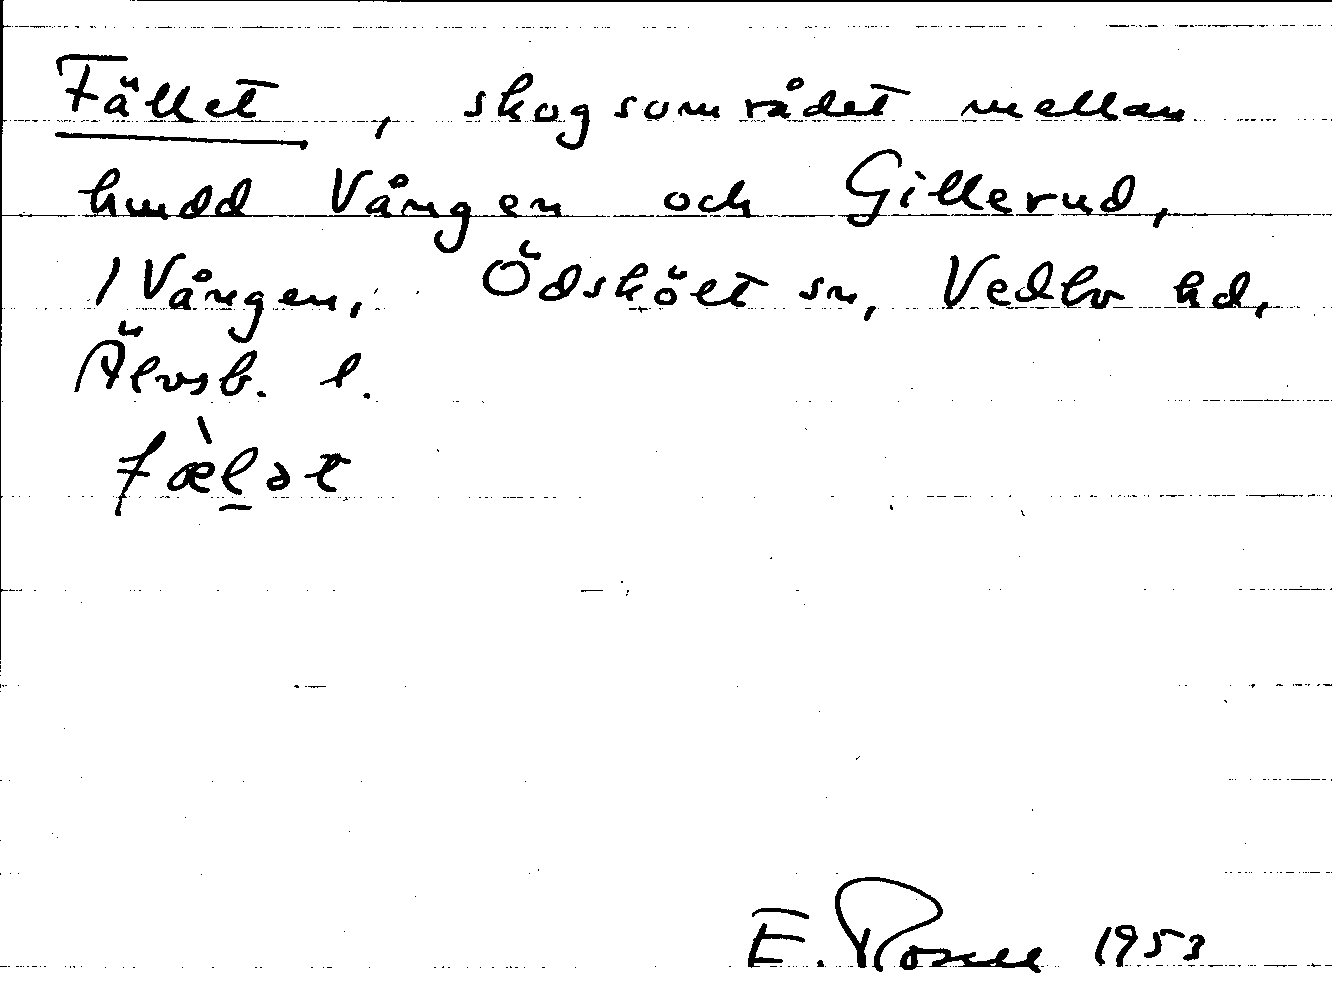 Fället, skogsområdet mellan
hmdd Vången och Gillerud,
1 Vången, Ödskölt sn, Vedbo hd,
Älvsb. l.
fæ̀l̠ət
E. Rosell 1953